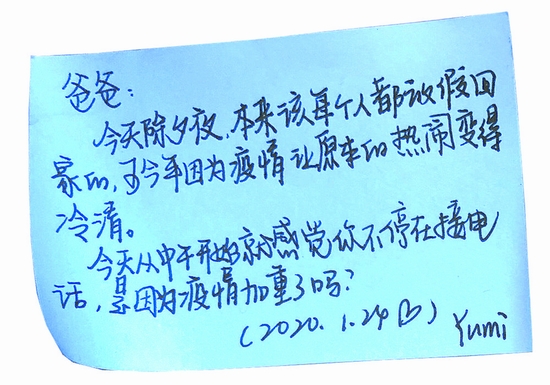 爸爸：
今天除夕夜，本来该每个人都放假回
家的，可今年因为疫情让原来的热闹变得
冷清。
今天从中午开始就感觉你不停在接电
话，是因为疫情加重了吗？
(2020.1.24 ) Yumi